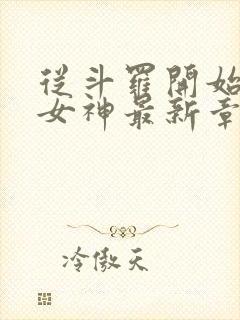 從斗羅開始
女神最新章
冷傲天